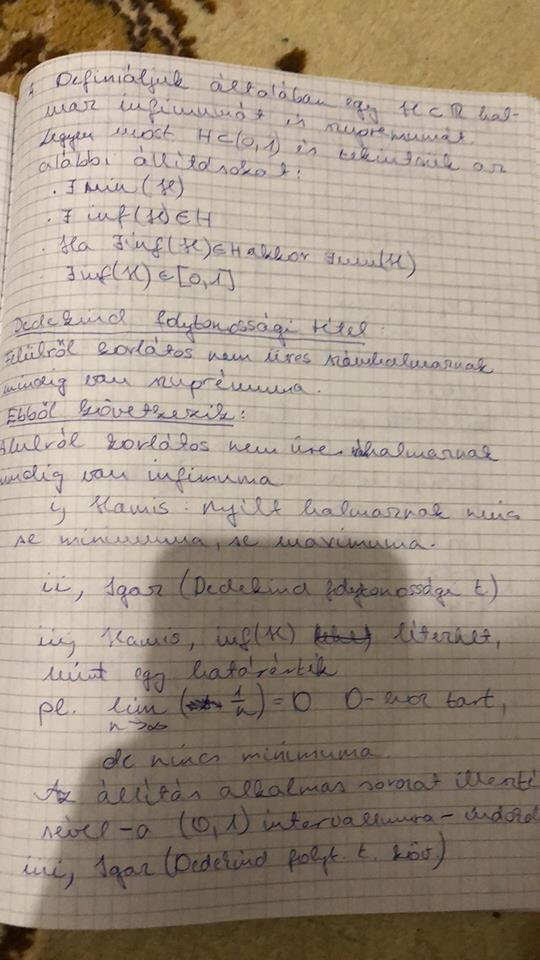 Definiáljuk általában egy H⊂ℝ hal-
maz infimumát és supremumát.
Legyen most H⊂(0,1) és tekintsük az
alábbi állításokat:
. ∃ min (H)
. ∃ inf(H)∈H
. Ha ∃inf(H)∈H akkor ∃min(H)
∃inf(H)∈[0,1]
Dedekind folytonossági tétel:
Felülről korlátos nem üres számhalmaznak
mindig van suprémuma.
Ebből következik:
Alulról korlátos nem üres halmaznak
mindig van infimuma
i, Hamis: nyílt halmaznak nincs
se minimuma, se maximuma.
ii, Igaz (Dedekind folytonossági t)
iii, Hamis, inf(H) létezhet,
mint egy határérték
pl. lim n→∞ (1/n) = 0 0-hoz tart,
de nincs minimuma.
Az állítás alkalmas sorozat illeszté
sével -a (0,1) intervallumra-
iiii, Igaz (Dedekind folyt. t. köv.)